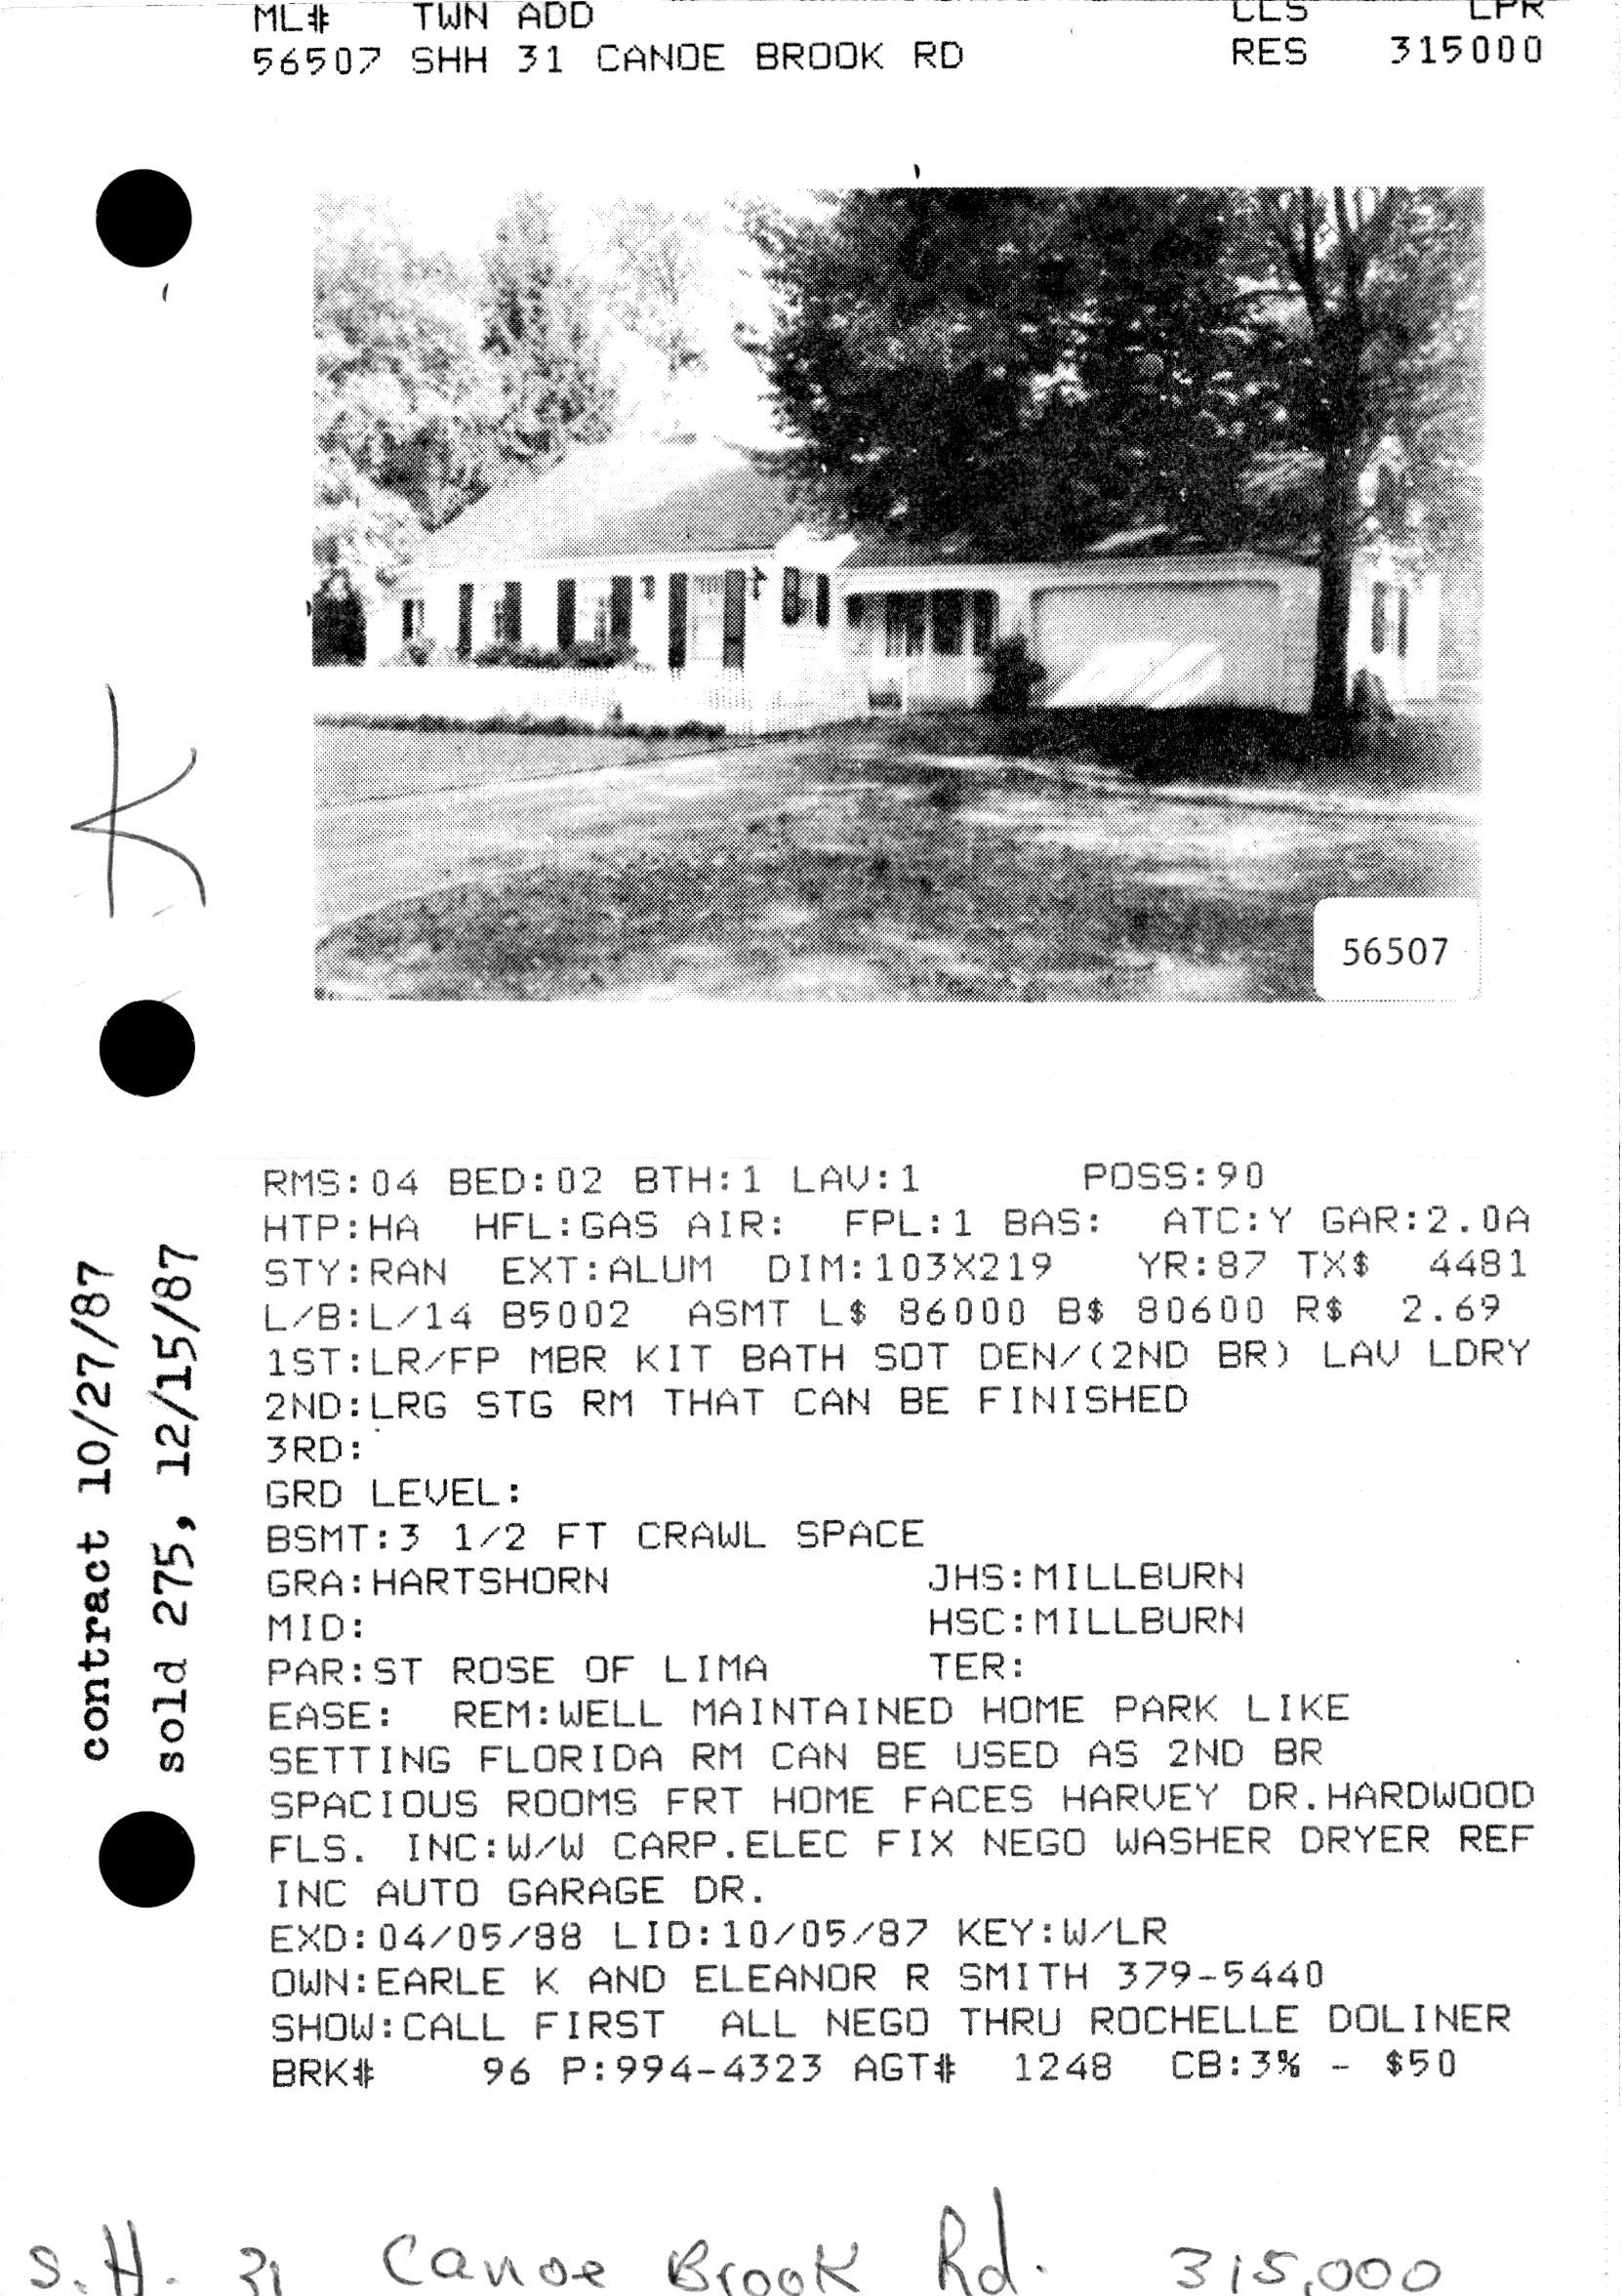 ML# TWN ADD CLS LPR
56507 SHH 31 CANOE BROOK RD RES 315000
56507
K
RMS:04 BED:02 BTH:1 LAV:1 POSS:90
HTP:HA HFL:GAS AIR: FPL:1 BAS: ATC:Y GAR:2.0A
STY:RAN EXT:ALUM DIM:103X219 YR:87 TX$ 4481
L/B:L/14 B5002 ASMT L$ 86000 B$ 80600 R$ 2.69
1ST:LR/FP MBR KIT BATH SOT DEN/(2ND BR) LAV LDRY
2ND:LRG STG RM THAT CAN BE FINISHED
3RD:
GRD LEVEL:
BSMT:3 1/2 FT CRAWL SPACE
GRA:HARTSHORN JHS:MILLBURN
MID: HSC:MILLBURN
PAR:ST ROSE OF LIMA TER:
EASE: REM:WELL MAINTAINED HOME PARK LIKE
SETTING FLORIDA RM CAN BE USED AS 2ND BR
SPACIOUS ROOMS FRT HOME FACES HARVEY DR.HARDWOOD
FLS. INC:W/W CARP.ELEC FIX NEGO WASHER DRYER REF
INC AUTO GARAGE DR.
EXD:04/05/88 LID:10/05/87 KEY:W/LR
OWN:EARLE K AND ELEANOR R SMITH 379-5440
SHOW:CALL FIRST ALL NEGO THRU ROCHELLE DOLINER
BRK# 96 P:994-4323 AGT# 1248 CB:3% - $50
contract 10/27/87
sold 275, 12/15/87
S.H. 31 Canoe Brook Rd. 315,000